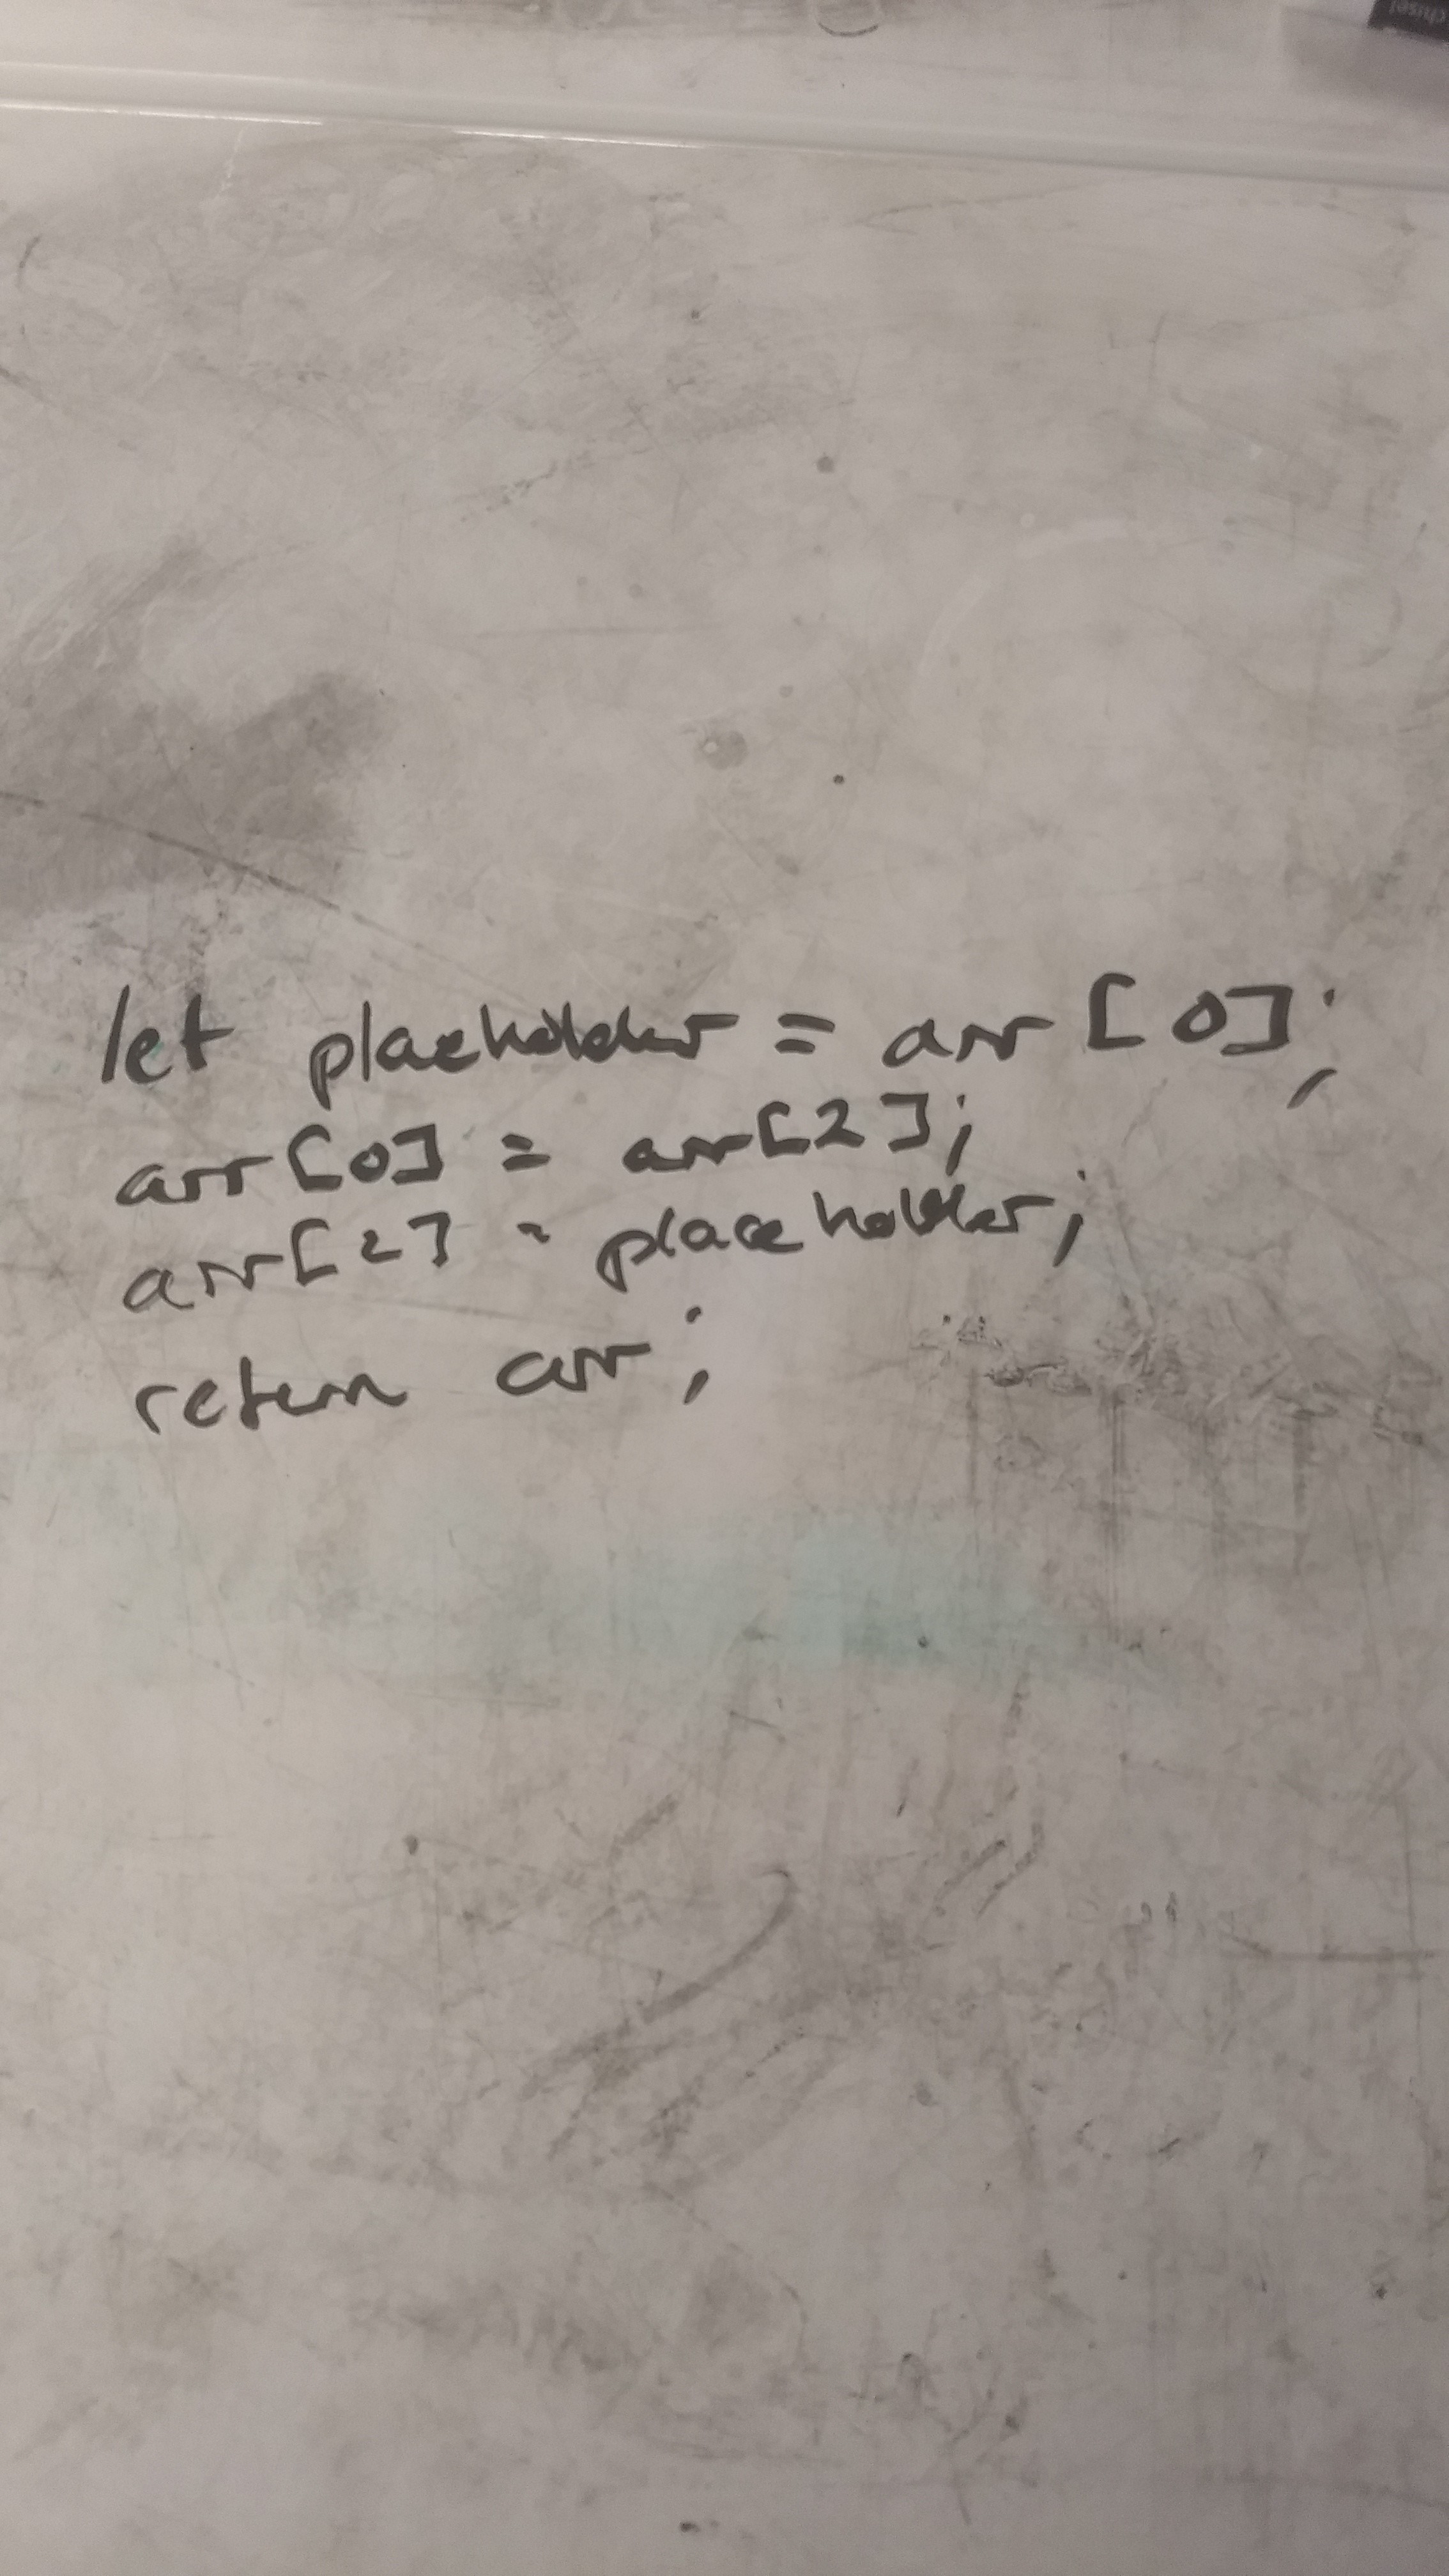 chisel
let placeholder = arr[0];
arr[0] = arr[2];
arr[2] = placeholder;
return arr;